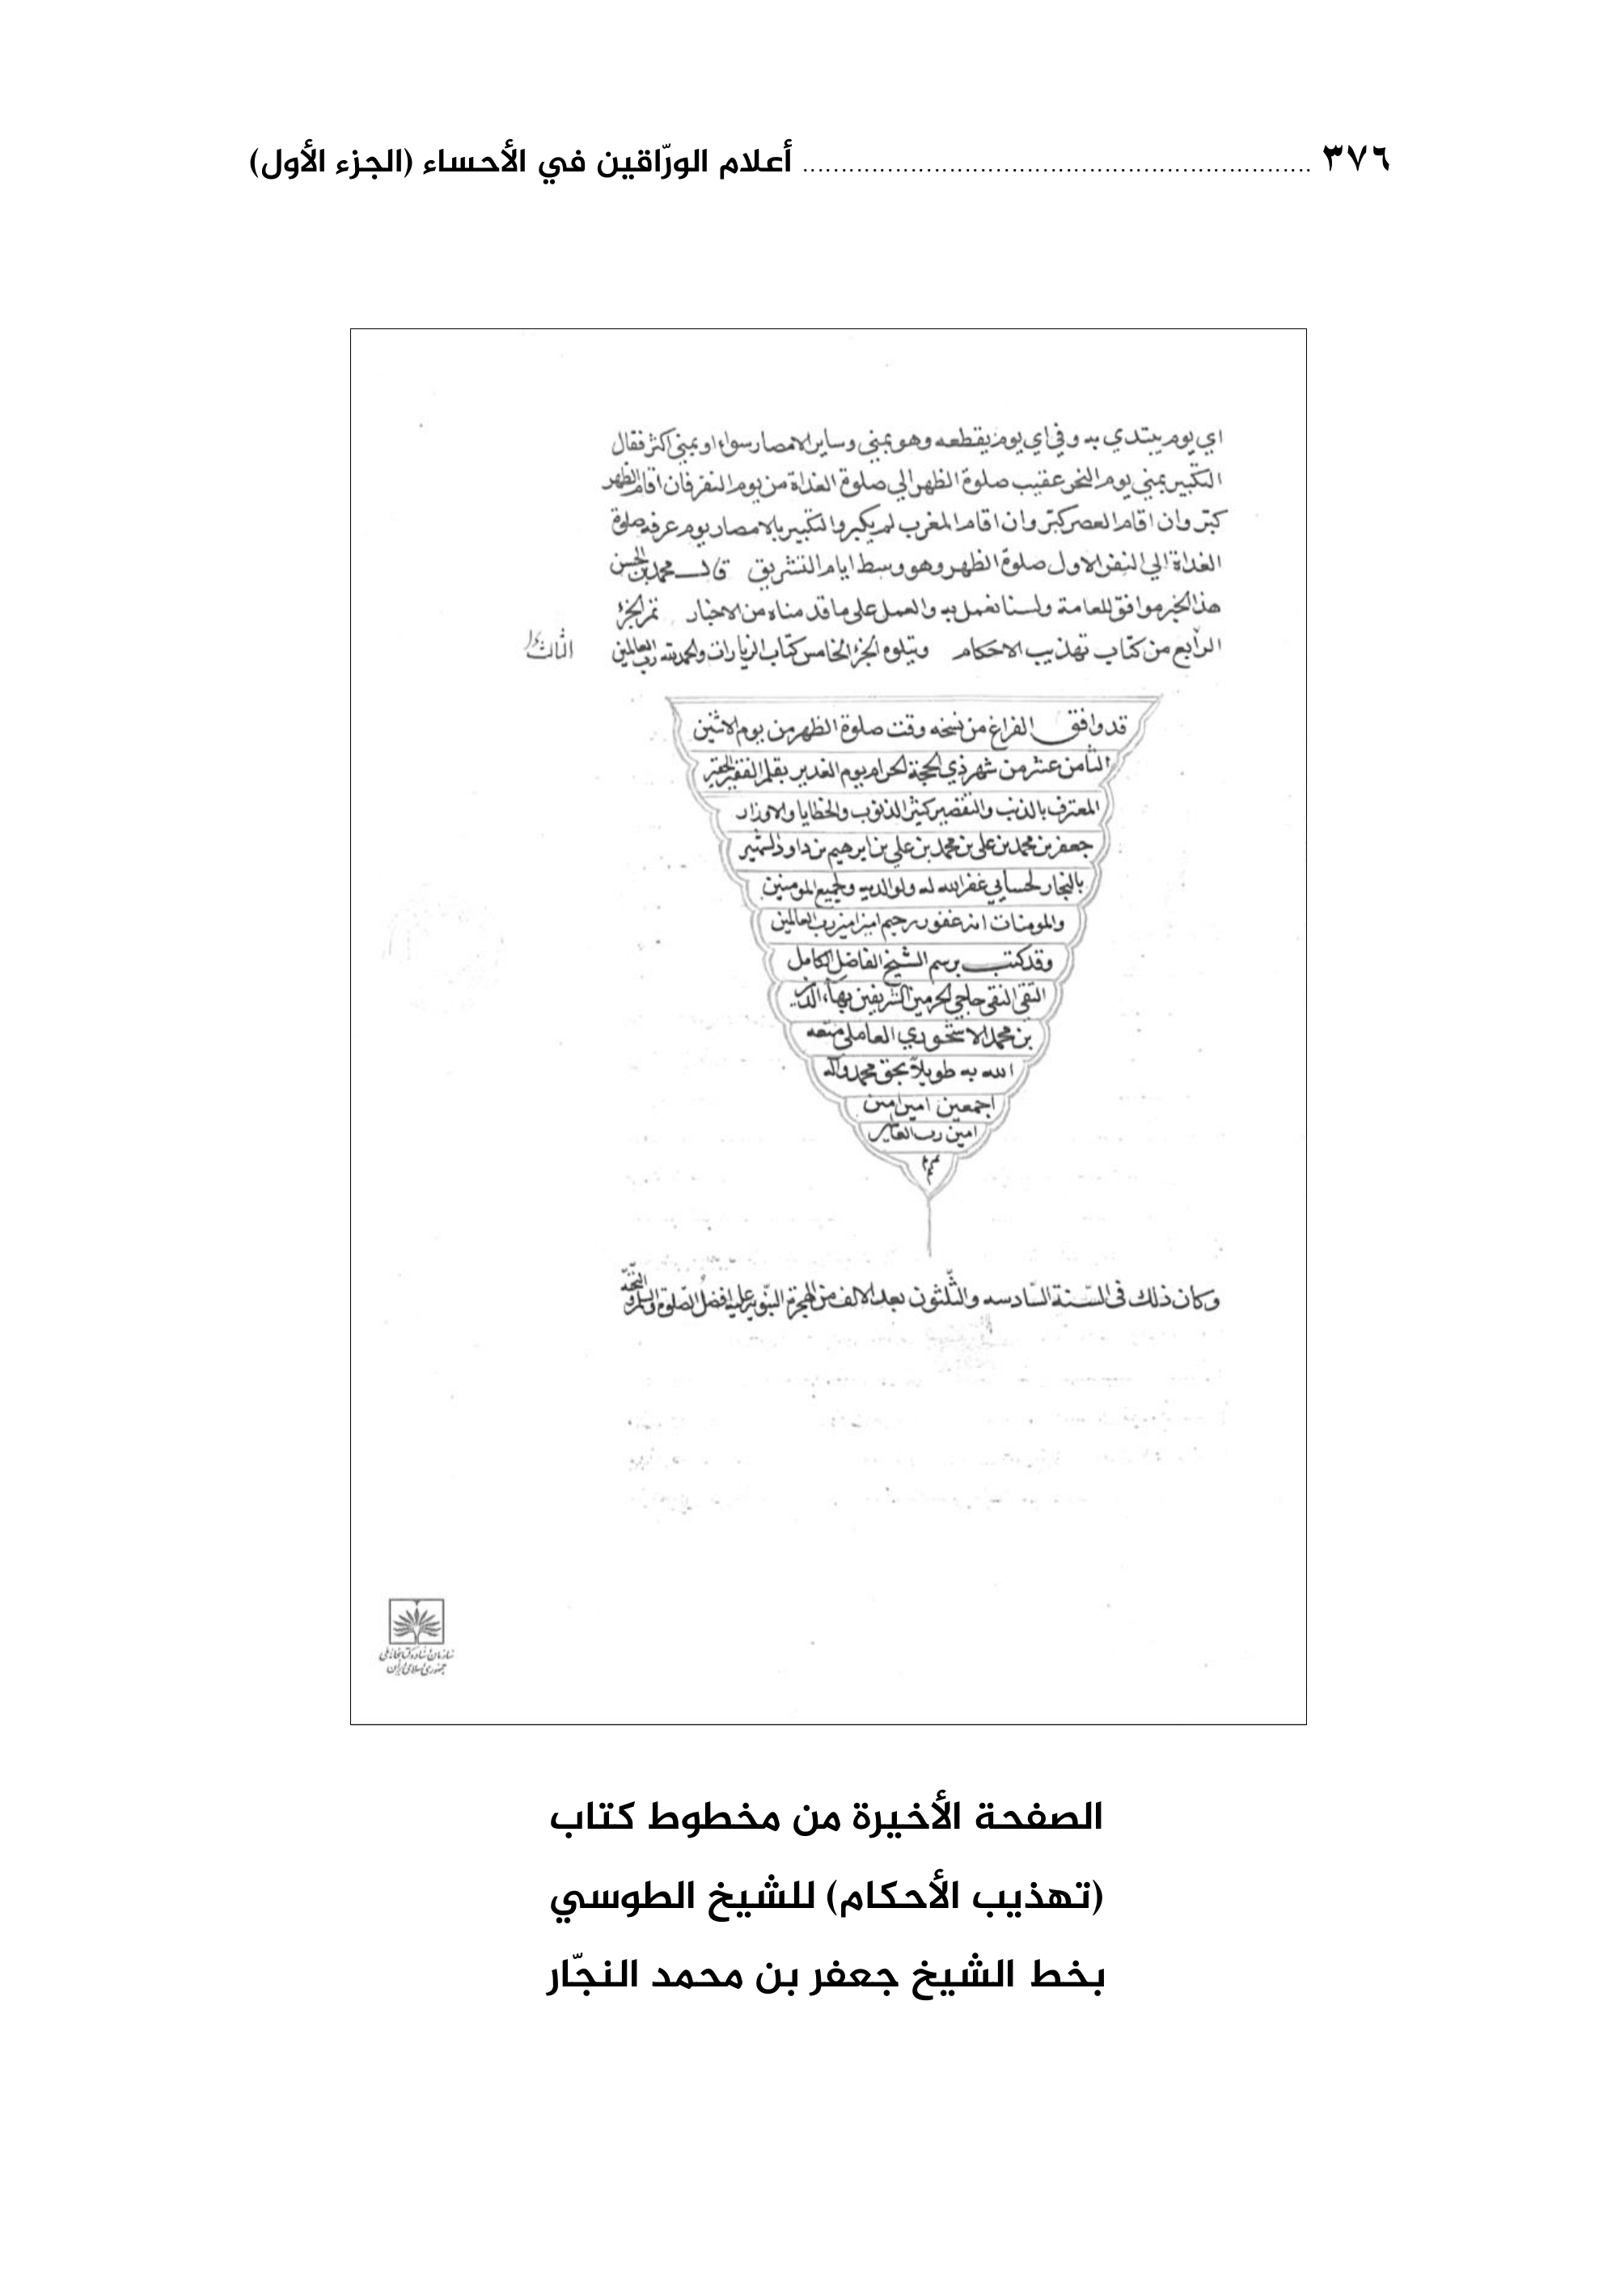 ٣٧٦ ................................................................ أعلام الورّاقين في الأحساء (الجزء الأول)
اي يوم يبتدي به وفي اي يوم يقطعه وهو بمني وساير الامصار سواء او بمني اكثر فقال
التكبير بمني يوم النحر عقيب صلوة الظهر الي صلوة الغداة من يوم النفر فان اقام الظهر
كبّر وان اقام العصر كبّر وان اقام المغرب لم يكبر والتكبير بالامصار يوم عرفه صلوة
الغداة الي النفر الاول صلوة الظهر وهو وسط ايام التشريق قال محمد بن الحسن
هذا الخبر موافق للعامة ولسنا نعمل به والعمل علي ما قدمناه من الاخبار تم الجزء
الرابع من كتاب تهذيب الاحكام ويتلوه الجزء الخامس كتاب الزيارات والحمد لله رب العالمين
قد وافق الفراغ من نسخه وقت صلوة الظهر من يوم الاثنين
الثامن عشر من شهر ذي الحجة الحرام يوم الغدير بقلم الفقير الحقير
المعترف بالذنب والتقصير كثير الذنوب والخطايا والاوزار
جعفر بن محمد بن علي بن محمد بن علي بن ابرهيم بن داود الشهير
بالنجار لحسايي غفر الله له ولوالديه ولجميع المومنين
والمومنات انه غفور رحيم امين امين رب العالمين
وقد كتب برسم الشيخ الفاضل الكامل
التقي النقي حاجي الحرمين الشريفين بهاء الدين
بن محمد العاملي متعه
الله به طويلاً بحق محمد وآله
اجمعين امين امين
امين رب العالمين
وكان ذلك فى السّنة السّادسه والثّلثون بعد الالف من الهجرة النّبوية عليه افضل الصّلوة والسلم والتّحيّة
سازمان اسناد و کتابخانه ملی
جمهوری اسلامی ایران
الصفحة الأخيرة من مخطوط كتاب
(تهذيب الأحكام) للشيخ الطوسي
بخط الشيخ جعفر بن محمد النجّار